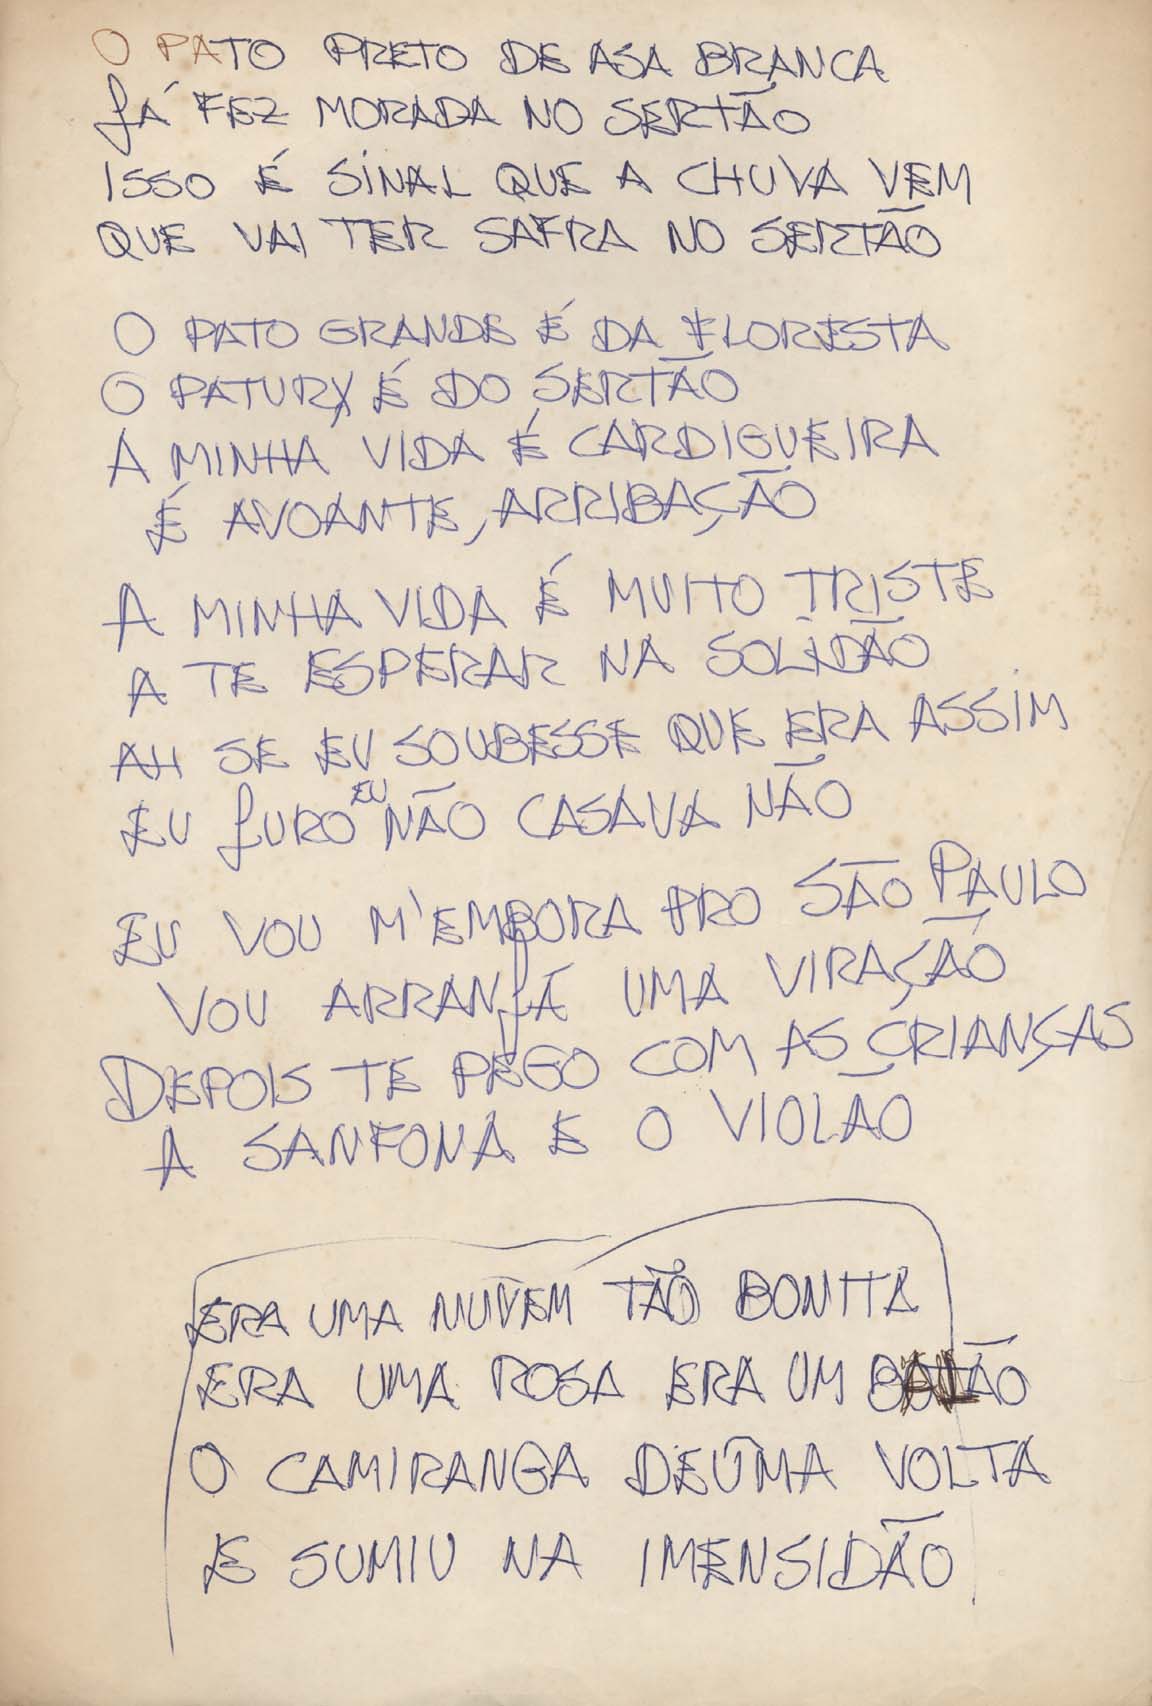 O PATO PRETO DE ASA BRANCA
JÁ FEZ MORADA NO SERTÃO
ISSO É SINAL QUE A CHUVA VEM
QUE VAI TER SAFRA NO SERTÃO
O PATO GRANDE É DA FLORESTA
O PATURY É DO SERTÃO
A MINHA VIDA É CARDIGUEIRA
É AVOANTE, ARRIBAÇÃO
A MINHA VIDA É MUITO TRISTE
A TE ESPERAR NA SOLIDÃO
AH SE EU SOUBESSE QUE ERA ASSIM
EU JURO EU NÃO CASAVA NÃO
EU VOU M'EMBORA PRO SÃO PAULO
VOU ARRANJÁ UMA VIRAÇÃO
DEPOIS TE PEGO COM AS CRIANÇAS
A SANFONA E O VIOLÃO
ERA UMA NUVEM TÃO BONITA
ERA UMA ROSA ERA UM
O CAMIRANGA DEU UMA VOLTA
E SUMIU NA IMENSIDÃO